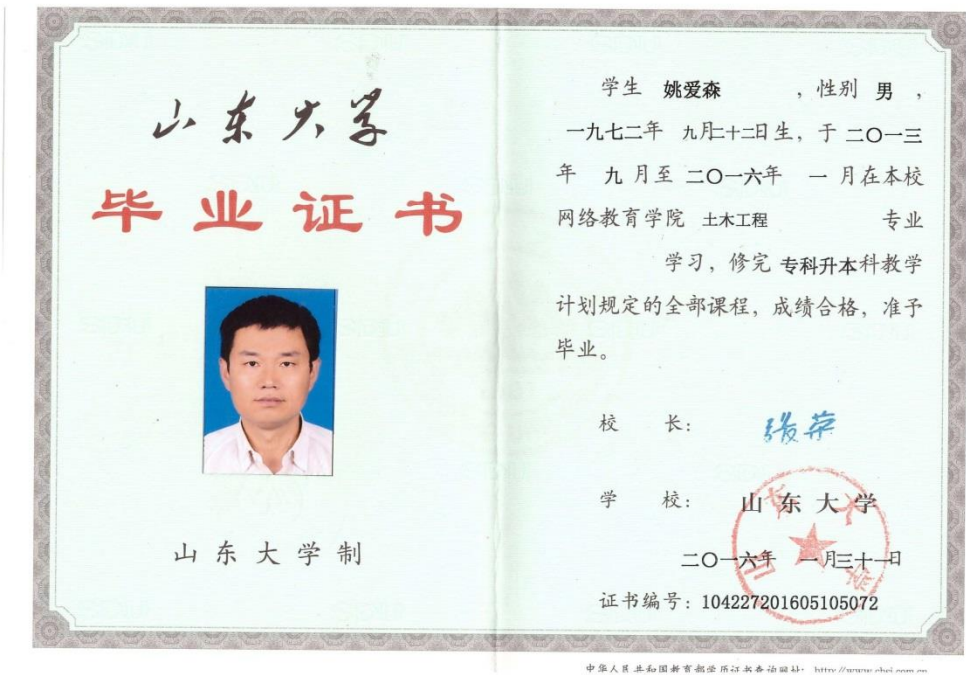 山东大学
毕业证书
山东大学制
学生 姚爱森 ，性别 男 ，
一九七二年 九月二十二日生，于 二〇一三
年 九 月至 二〇一六年 一 月在本校
网络教育学院 土木工程 专业
学习，修完 专科升本科教学
计划规定的全部课程，成绩合格，准予
毕业。
校 长：
学 校： 山东大学
山东大学
二〇一六年 一月三十一日
证书编号：104227201605105072
中华人民共和国教育部学历证书查询网址： http://www.chsi.com.cn